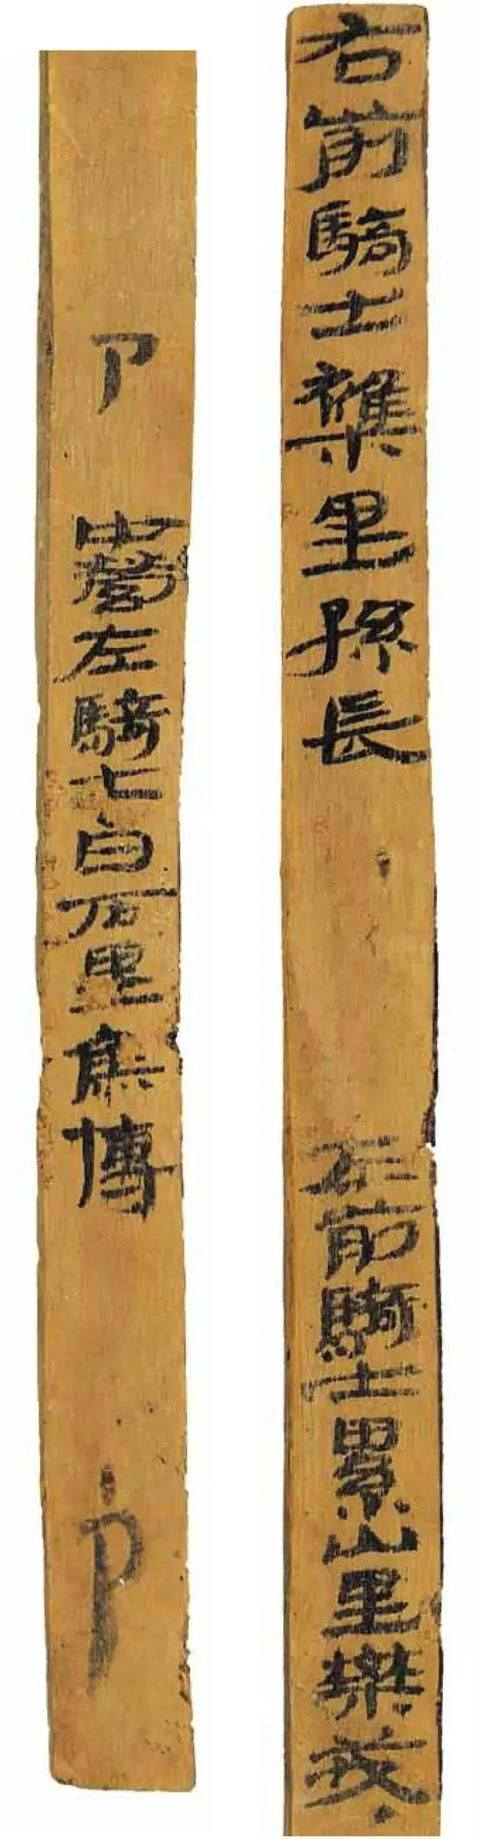 右前騎士襍里孫長 左前騎士累山里樂戎
卩 中營左騎士白石里
卩